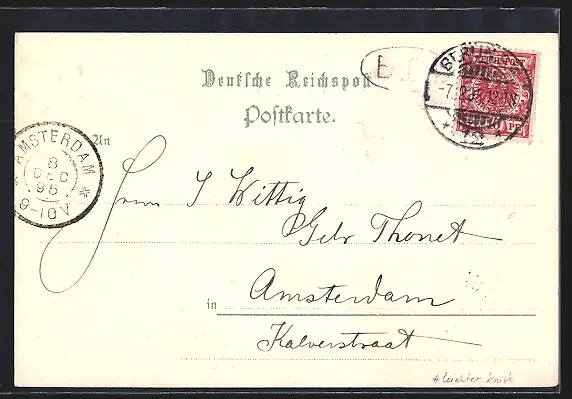 Deutsche Reichspost
Postkarte.
REICHSPOST
BERLIN
AMSTERDAM
8
DEC
95
9-10V
An
Herrn J Wittig
Gebr Thonet
in Amsterdam
Kalverstraat
#leichter Knick